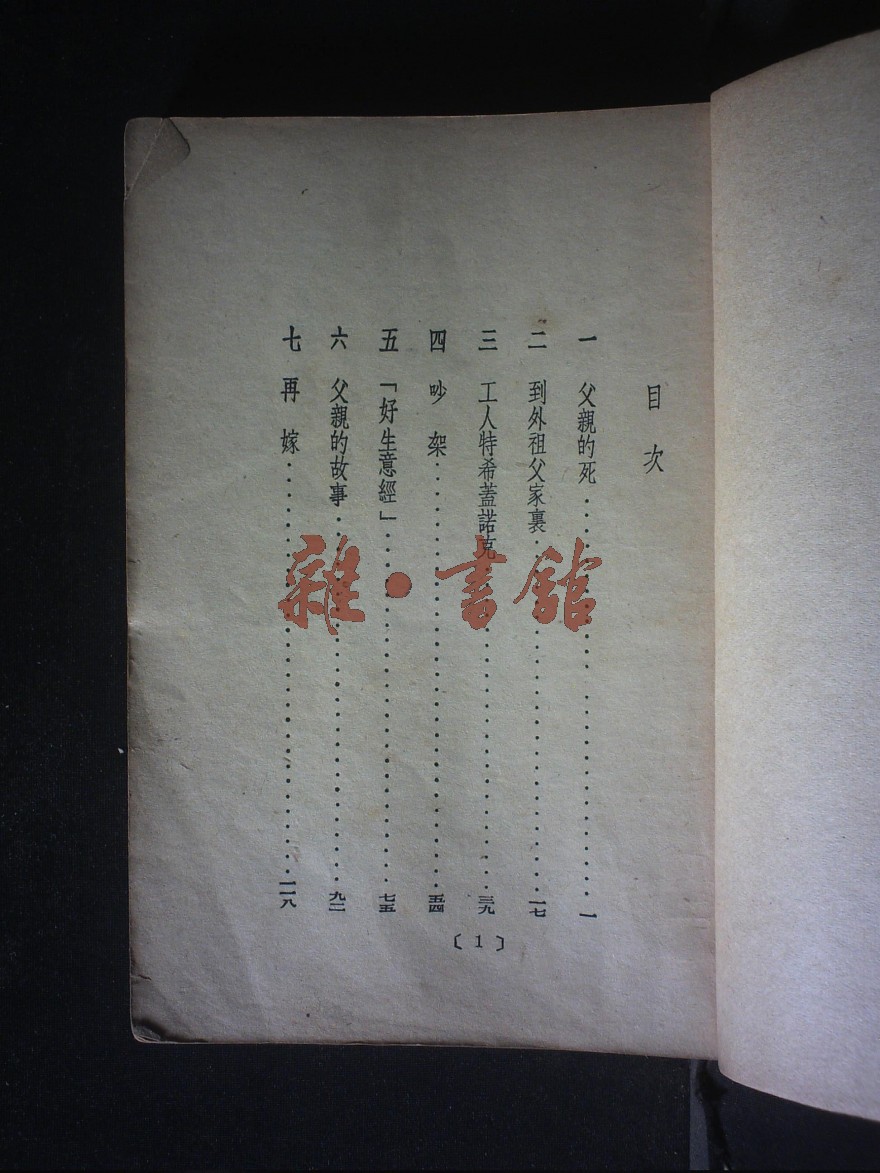 目次
一 父親的死 一
二 到外祖父家裏 一七
三 工人特希蓋諾克 三九
四 吵架 五四
五 「好生意經」 七五
六 父親的故事 九二
七 再嫁 一一八
〔1〕
雜·書館